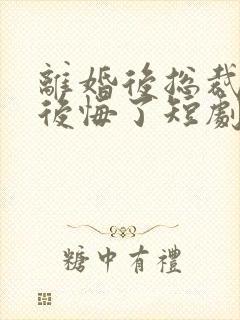 離婚後總裁
後悔了短劇
糖中有禮